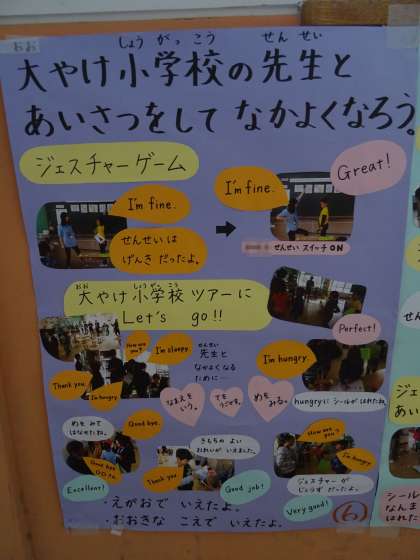 おお しょう がっ こう せん せい
大やけ小学校の先生と
あいさつをして なかよくなろう
ジェスチャーゲーム
I'm fine.
I'm fine.
Great!
せんせいは
げんき だったよ。
せんせい スイッチ ON
おお しょうがっこう
大やけ小学校 ツアーに
Let's go!!
Perfect!
How are you?
I'm sleepy.
せんせい
先生と
なかよくなる
ために…
I'm hungry.
Thank you.
I'm hungry.
なまえを
いう。
てを
めを
みる。
hungryに シールが はれたね。
めを みて
はなせたね。
Good bye.
きもちの よい
おれいが いえました。
How are you?
I'm hungry.
Good bye
Thank you.
Excellent!
Good job!
ジェスチャーが
じょうず だったよ。
Very good!
・えがおで いえたよ。
・おおきな こえで いえたよ。
6
ジェ
あい
シール
なん
はれた